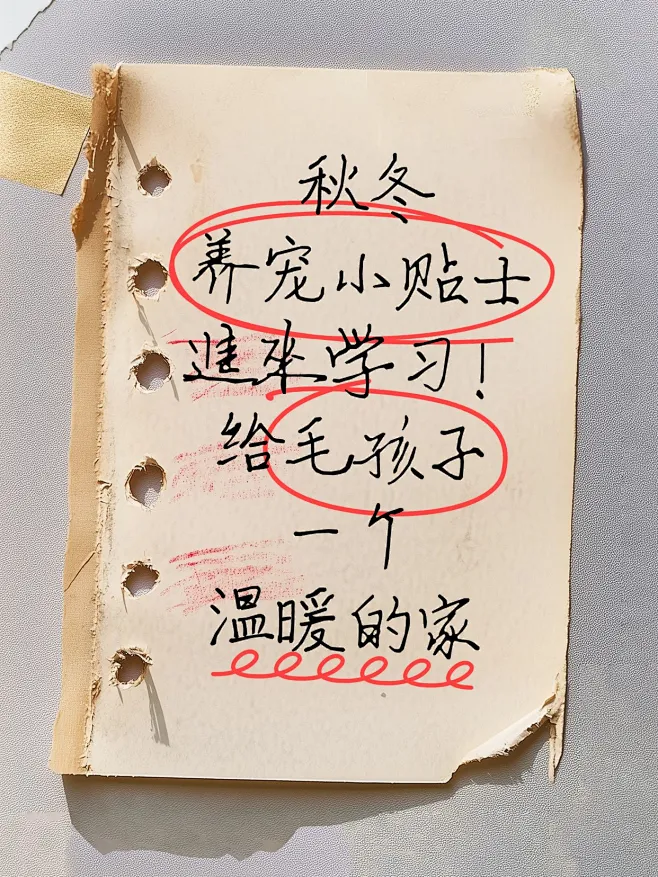 秋冬
养宠小贴士
進来学习！
给毛孩子
一个
温暖的家